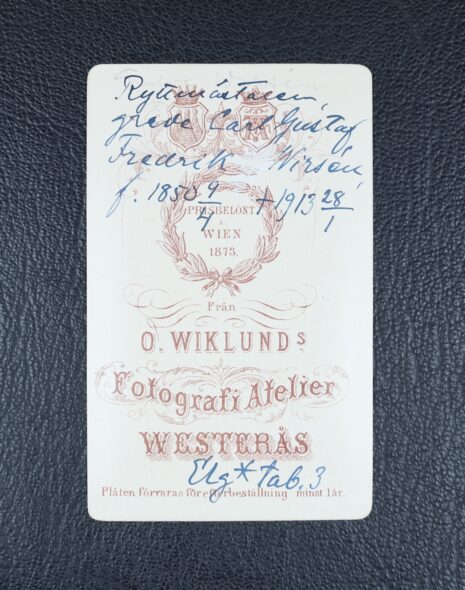 Ryttmästaren,
greve Carl Gustaf
Fredrik Wirsén
f. 1850 9/4 + 1913 28/1
PRISBELÖNT
I
WIEN
1873.
Från
O. WIKLUNDS
Fotografi Atelier
WESTERÅS
Elg* tab. 3
Plåten förvaras för efterbeställning minst 1 år.